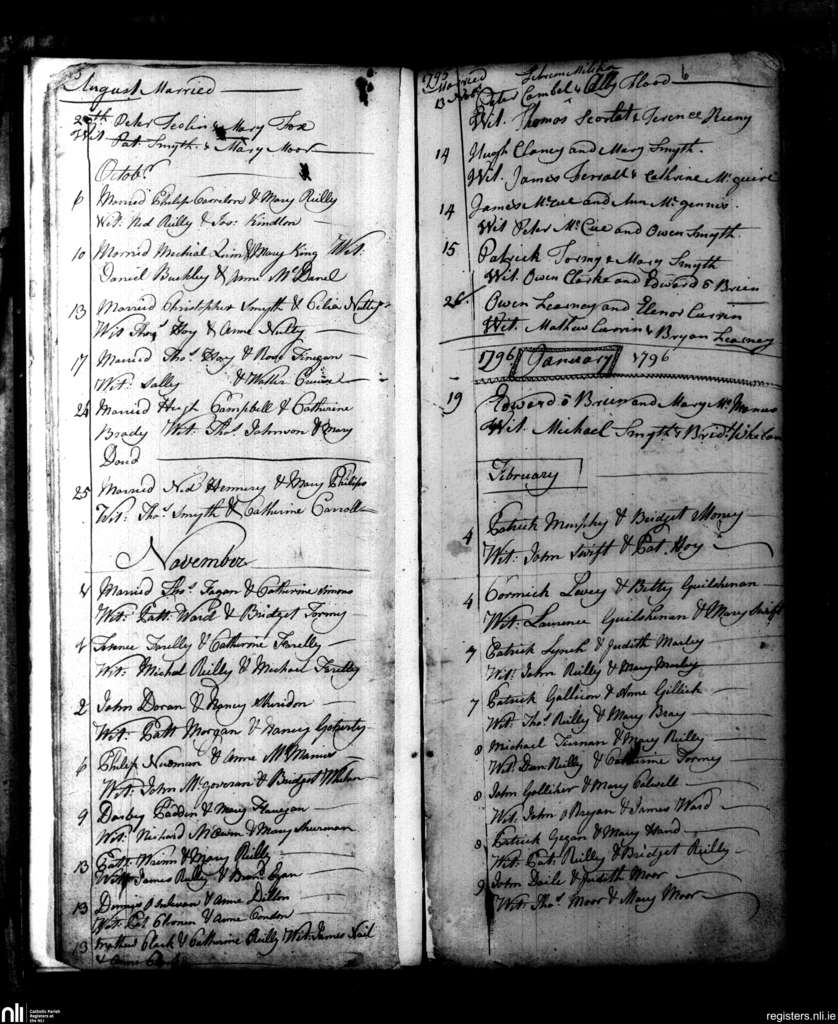 August Married
Peter & Mary Fox
Wit Pat Smyth & Mary Moor
Octobr
6 Married Philip & Mary Reilly
Wit: Ned Reilly & Jas:
10 Married Michial Quin & Mary King Wit.
Daniel Buckley & Anne Mc Danel
13 Married Christopher Smyth & Celia Nulty
Wit Thos Hoy & Anne Nulty
17 Married Thos Hoy & Rose Finegan
Wit: Sally & Walter
24 Married Hugh Campbell & Catherine
Brady Wit: Thos Johnson & Mary
Doud
25 Married Ned Hennery & Mary Philips
Wit: Thos Smyth & Catherine Carroll
November
Married Thos Fagan & Catherine Simons
Wit: Patt Ward & Bridget Tormy
Terence Farelly & Catherine Farelly
Wit: Michal Reilly & Michael Farelly
2 John Doran & Nancy Sheridon
Wit: Patt Morgan & Nancy
6 Philip & Anne Mc Manus
Wit: John Mc goveran & Bridget
9 Darby & Mary Flanegan
Wit: Richard & Mary
13 Patt & Mary Reilly
Wit James Reilly & Egan
13 & Anne Dillon
Wit: Pat & Anne Condon
13 Mathew Clark & Catherine Reilly Wit: James Nail
& Anne
1795
Married
13 Peter Cambel & Ally Flood 6
Wit. Thomas Scarlet & Terence Reeny
14 Hugh Clancy and Mary Smyth.
Wit. James Ferrall & Cathrine Mc guire
14 James Mc Cue and Ann Mc gennis.
Wit Peter Mc Cue and Owen Smyth.
15 Patrick Tormy & Mary Smyth
Wit. Owen Clarke and Edward o Brien
26 Owen Learney and Elenor Currin
Wit. Mathew Currin & Bryan Learney
1796 January 1796
19 Edward o Brien and Mary Mc Manus
Wit. Michael Smyth & Bridt Whelan
February
4 Patrick Murphy & Bridget Money
Wit: John Swift & Pat. Hoy
4 Cormick Lavey & Betty Guilshenan
Wit: Laurence Guilshenan & Mary Swift
7 Patrick Lynch & Judith Marley
Wit: John Reilly & Mary Marley
7 Patrick & Anne Gillick
Wit: Thos Reilly & Mary Bray
8 Michael Kernan & Mary Reilley
Wit: Dan Reilly & Catherine Tormey
8 John Galliher & Mary Calwell
Wit: John o Bryan & James Ward
8 Patrick Gagan & Mary Hand
Wit: Patt Reilly & Bridget Reilly
9 John Daile & Judith Moor
Wit: Thos Moor & Mary Moor
nli
Catholic Parish
Registers at
the NLI
registers.nli.ie